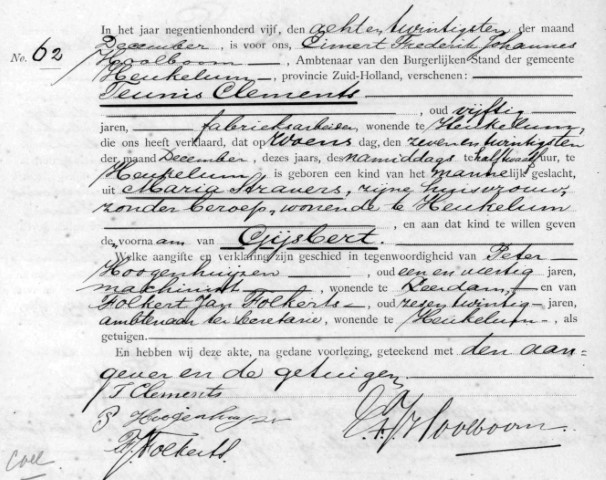 In het jaar negentienhonderd vijf, den achtentwintigsten der maand
December, is voor ons, Eimert Frederik Johannes
No. 62 Hoolboom, Ambtenaar van den Burgerlijken Stand der gemeente
Heukelum, provincie Zuid-Holland, verschenen:
Teunis Clements
, oud vijftig
jaren, fabrieksarbeider, wonende te Heukelum,
die ons heeft verklaard, dat op Woensdag, den zevenentwintigsten
der maand December, dezes jaars, des namiddags te half uur, te
Heukelum, is geboren een kind van het mannelijk geslacht,
uit Maria Stravers, zijne huisvrouw,
zonder beroep, wonende te Heukelum
, en aan dat kind te willen geven
de voornaam van Gijsbert.
Welke aangifte en verklaring zijn geschied in tegenwoordigheid van Peter
Hoogenhuijzen, oud een en veertig jaren,
machinist, wonende te Leerdam, en van
Folkert Jan Folkerts, oud zes en twintig jaren,
ambtenaar ter secretarie, wonende te Heukelum, als
getuigen.
En hebben wij deze akte, na gedane voorlezing, geteekend met den aan-
gever en de getuigen.
T Clements
P Hoogenhuijzen
F.J. Folkerts
E.F.J. Hoolboom
Coll